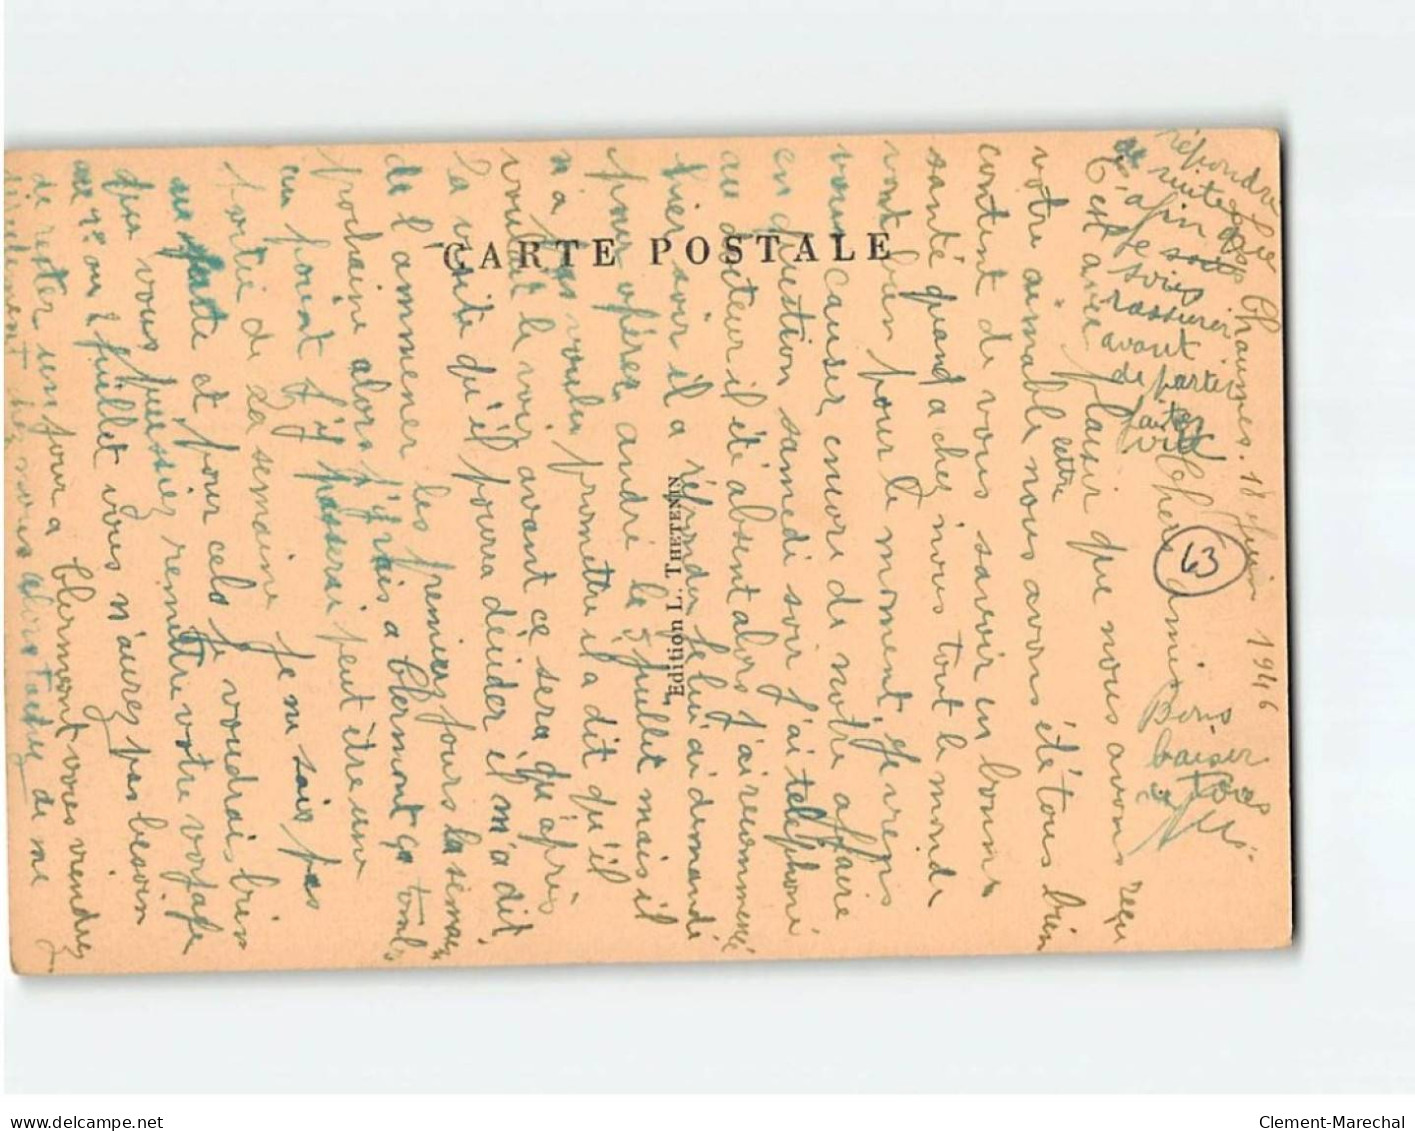 Chaumes. 18 juin 1946
Chers amis
C'est avec plaisir que nous avons reçu
votre aimable lettre nous avons été tous bien
contents de vous savoir en bonne
santé quand a chez nous tout le monde
vont bien pour le moment, je reviens
vous causer encore de notre affaire
en question samedi soir j'ai téléphoné
au docteur il été absent alors j'ai recommencé
hier soir il a répondu je lui ai demandé
pour opérer andré le 5 juillet mais il
n'a pas voulu promettre il a dit qu'il
voulait le voir avant ce sera qu'après
la visite qu'il pourra décider il m'a dit
de l'ammener les premier jours la semaine
prochaine alors j'y vais a Clermont ça tombe
un point j'y passerai peut être une
partie de la semaine je ne sais pas
au juste et pour cela je voudrais bien
que vous puissiez remettre votre voyage
au 1er ou 2 juillet vous n'aurez pas besoin
de rester un jour a Clermont vous viendrez
directement chez nous alors tachez de me
répondre
de suite
afin que
je sois
rassurer
avant
de partir
faites
vite
Bons
baiser
a tous
CARTE POSTALE
Edition L. THETENIN
63
www.delcampe.net
Clement-Marechal